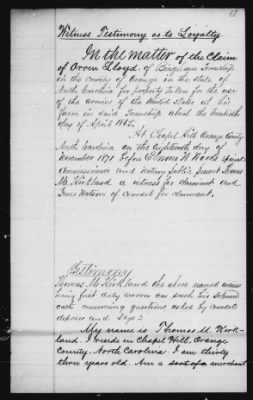 Witness Testimony as to Loyalty.
In the matter of the Claim
of Orren Lloyd of Bingham Township
in the county of Orange in the state of
North Carolina for property taken for the use
of the armies of the United States at his
farm in said Township about the
day of April 1865.
At Chapel Hill Orange County
North Carolina on the eighteenth day of
November 1871 before W Woods special
Commissioner and Notary Public, present Thomas
M. Kirkland a witness for claimant and
Jones Watson of Counsel for claimant.
Testimony
Thomas M. Kirkland the above named witness
being first duly sworn was such his solemn
oath answering questions asked by counsel
deposes and Says:
My name is Thomas M. Kirk-
land. I reside in Chapel Hill, Orange
County, North Carolina. I am thirty
three years old. Am a merchant